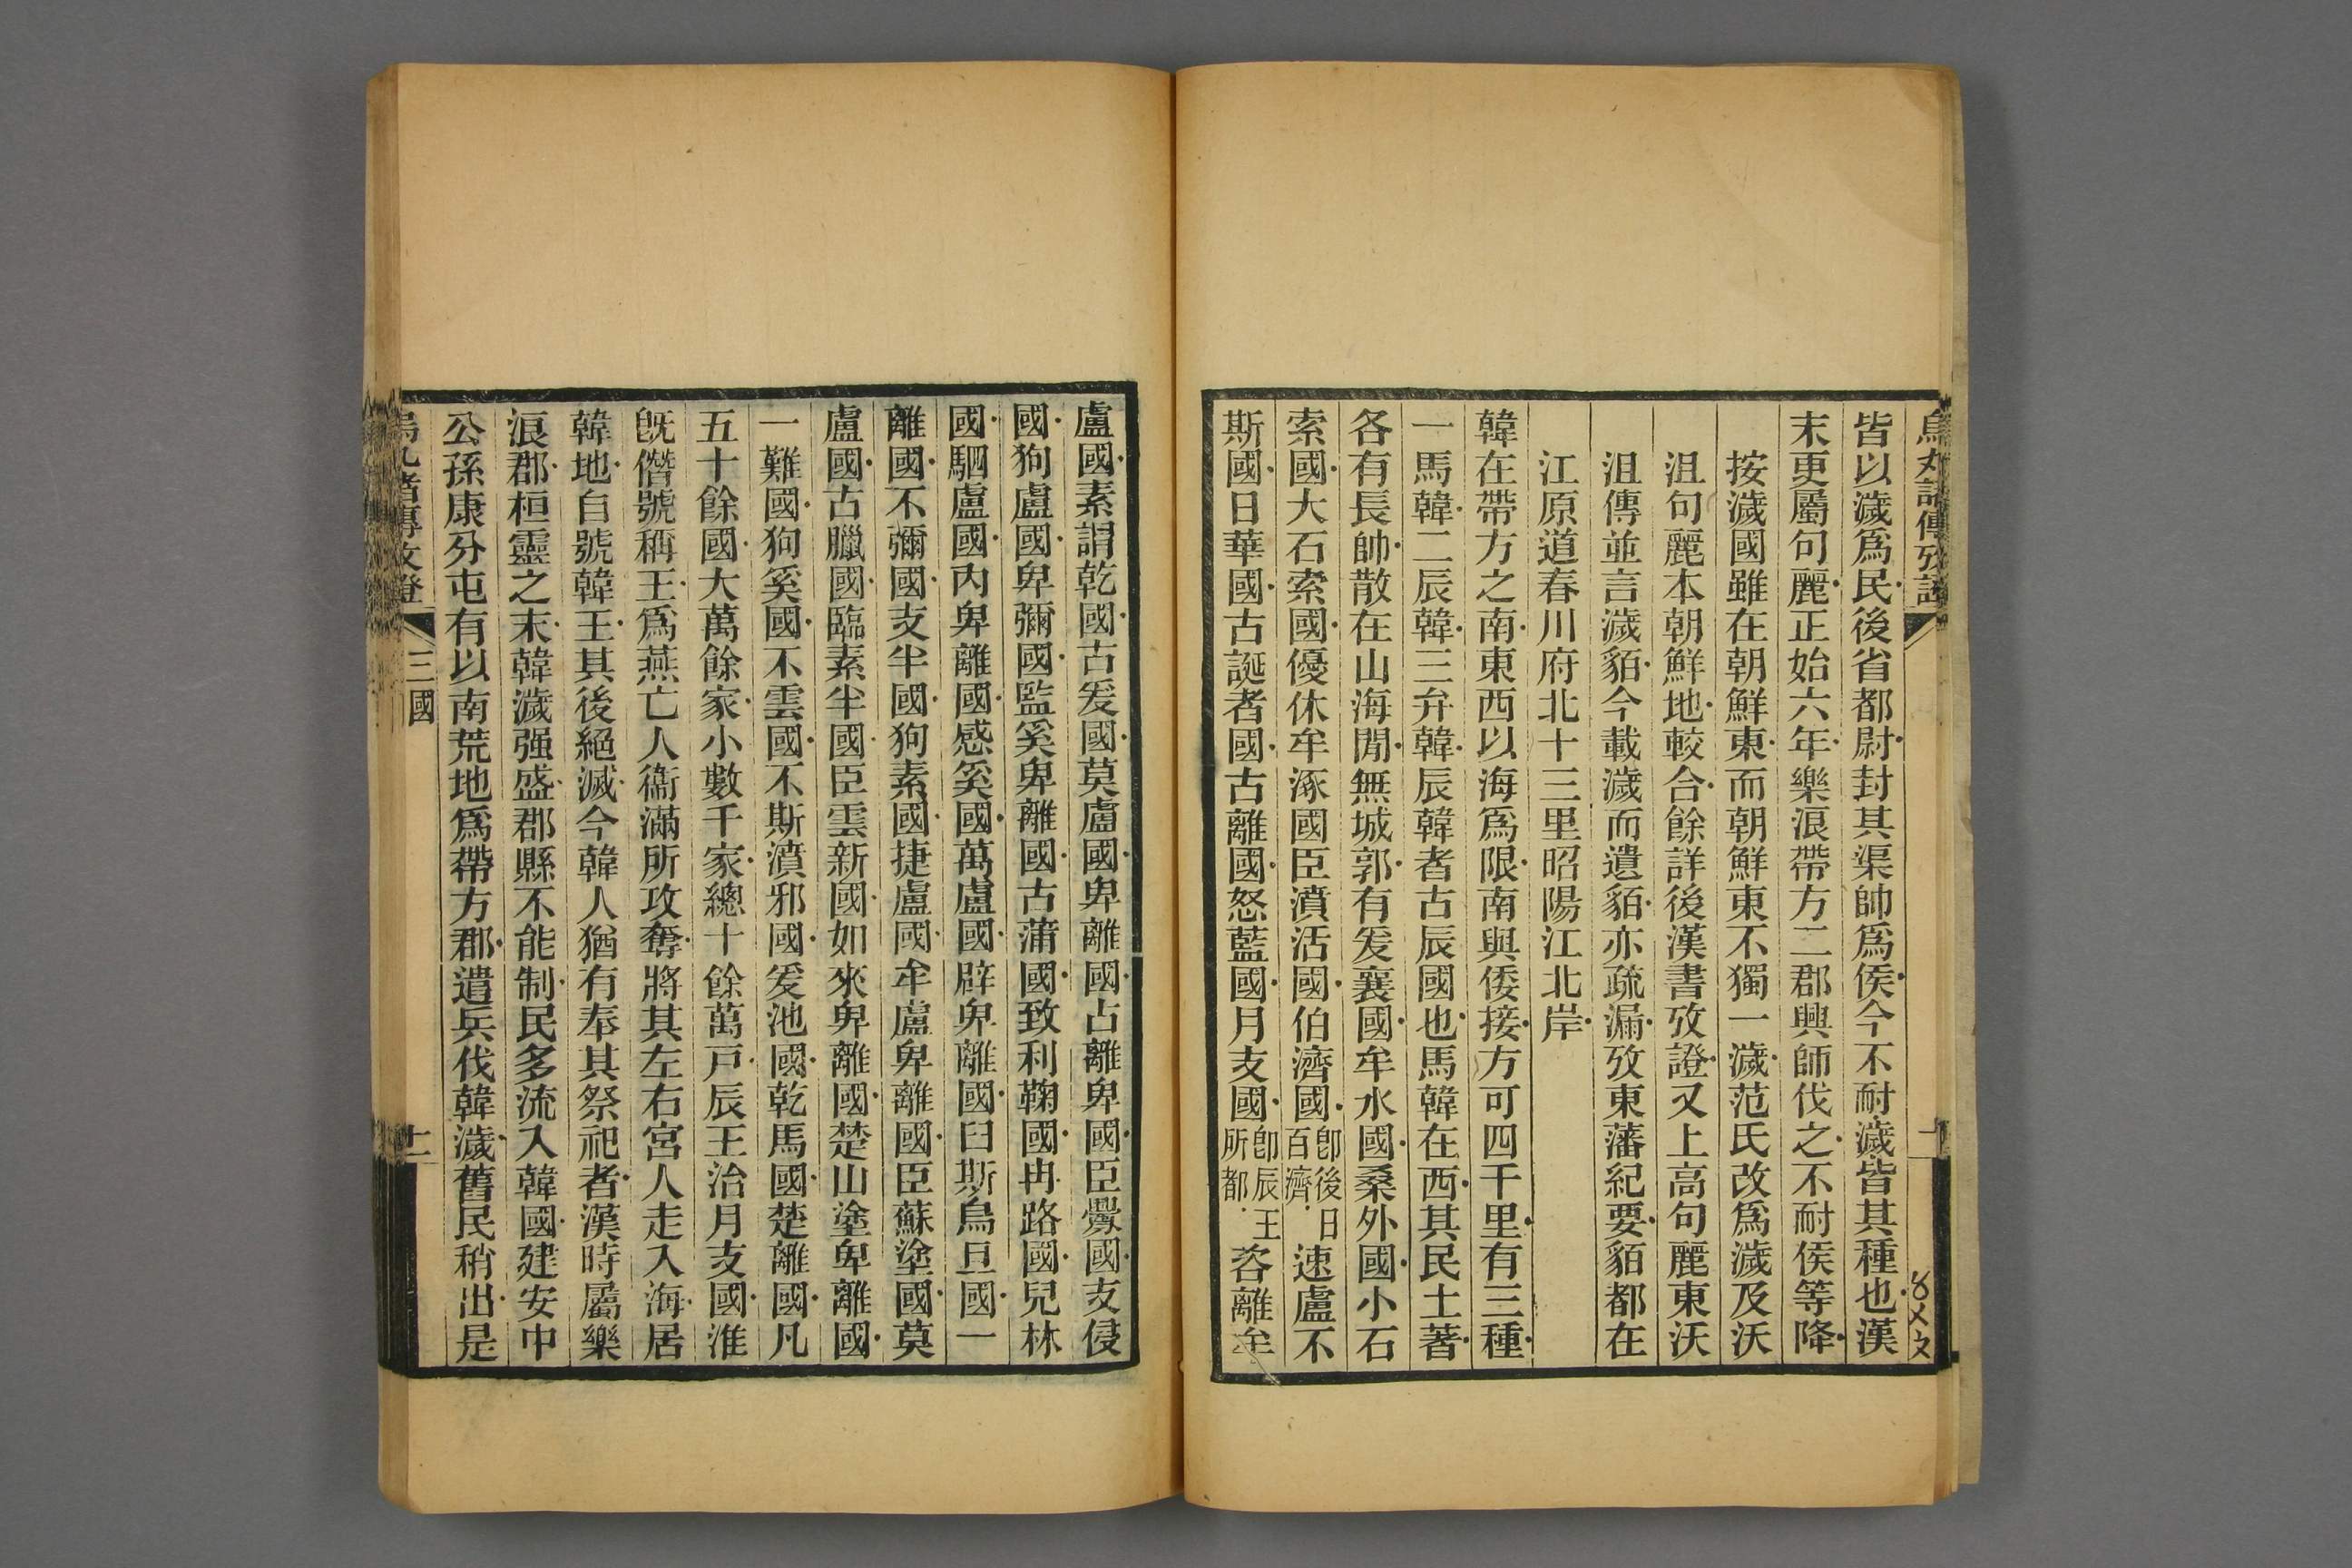 皆以濊爲民後省都尉封其渠帥爲侯今不耐濊皆其種也漢
末更屬句麗正始六年樂浪帶方二郡興師伐之不耐侯等降
按濊國雖在朝鮮東而朝鮮東不獨一濊范氏改爲濊及沃
沮句麗本朝鮮地較合餘詳後漢書攷證又上高句麗東沃
沮傳並言濊貊今載濊而遺貊亦疏漏攷東藩紀要貊都在
江原道春川府北十三里昭陽江北岸
韓在帶方之南東西以海爲限南與倭接方可四千里有三種
一馬韓二辰韓三弁韓辰韓者古辰國也馬韓在西其民土著
各有長帥散在山海閒無城郭有爰襄國牟水國桑外國小石
索國大石索國優休牟涿國臣濆活國伯濟國卽後日百濟速盧不
斯國日華國古誕者國古離國怒藍國月支國卽辰王所都咨離牟
盧國素謂乾國古爰國莫盧國卑離國占離卑國臣釁國支侵
國狗盧國卑彌國監奚卑離國古蒲國致利鞠國冉路國兒林
國駟盧國內卑離國感奚國萬盧國辟卑離國臼斯烏旦國一
離國不彌國支半國狗素國捷盧國牟盧卑離國臣蘇塗國莫
盧國古臘國臨素半國臣雲新國如來卑離國楚山塗卑離國
一難國狗奚國不雲國不斯濆邪國爰池國乾馬國楚離國凡
五十餘國大萬餘家小數千家總十餘萬戶辰王治月支國淮
旣僭號稱王爲燕亡人衞滿所攻奪將其左右宮人走入海居
韓地自號韓王其後絕滅今韓人猶有奉其祭祀者漢時屬樂
浪郡桓靈之末韓濊强盛郡縣不能制民多流入韓國建安中
公孫康分屯有以南荒地爲帶方郡遣兵伐韓濊舊民稍出是
三國